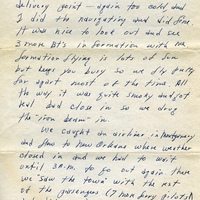 delivery point - again too cold and
I did the navigating and did fine
It was nice to look out and see
3 more BT's in formation with me
formation flying is lots of fun
but keeps you busy so we fly fairly
far apart most of the time. All
the way it was quite smoky and got
real bad close in so we drug
the "iron beam" in
We caught an airline in Montgomery
and flew to New Orleans where weather
closed in and we had to wait
until 3 A.M. to go out again there
we "saw the town" with the rest
of the passengers (7 men ferry pilots)